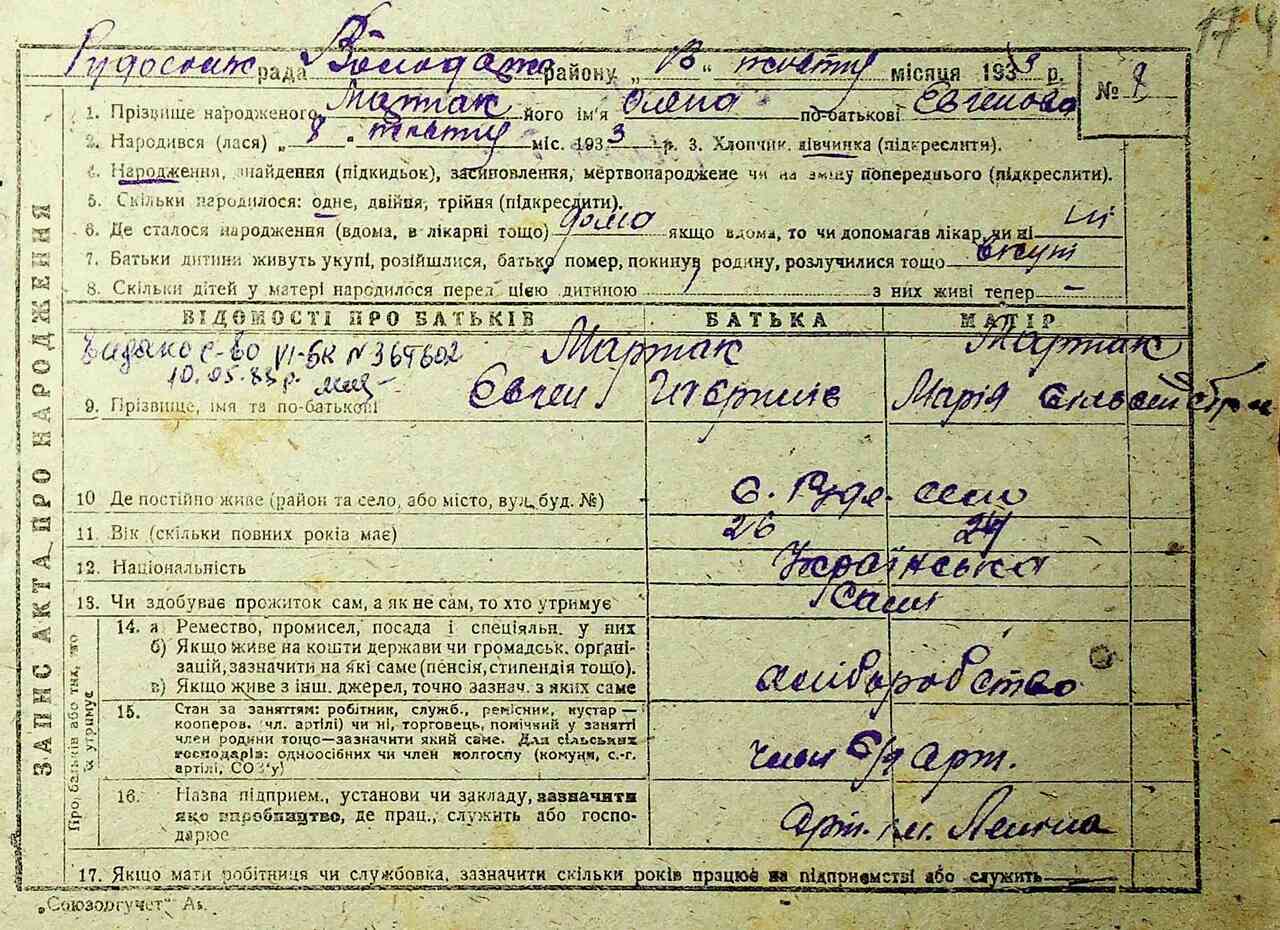 174
Рудосільск рада Володарск району „13“ жовтня місяця 1933 р.
№ 8
1. Прізвище народженого Мартак його ім'я Олена по-батькові Євгенова
2. Народився (лася) „8“ жовтня міс. 1933 р. 3. Хлопчик, дівчинка (підкреслити).
4. Народження, знайдення (підкидьок), засиновлення, мертвонароджене чи на зміну попереднього (підкреслити).
5. Скільки народилося: одне, двійня, трійня (підкреслити).
6. Де сталося народження (вдома, в лікарні тощо) дома якщо вдома, то чи допомагав лікар, чи ні ні
7. Батьки дитини живуть укупі, розійшлися, батько помер, покинув родину, розлучилися тощо вкупі
8. Скільки дітей у матері народилося перед цією дитиною з них живі тепер –
ЗАПИС АКТА ПРО НАРОДЖЕННЯ
ВІДОМОСТІ ПРО БАТЬКІВ БАТЬКА МАТІР
Видано с-во VI-БК N 364602
10.05.83 р.
Мартак Мартак
9. Прізвище, імя та по-батькові Євген Марія
10 Де постійно живе (район та село, або місто, вул., буд. №) с. Руде село
11. Вік (скільки повних років має) 26 24
12. Національність Українська
13. Чи здобуває прожиток сам, а як не сам, то хто утримує Самі
Про батьків або тих, хто їх утримує
14. а) Ремество, промисел, посада і спеціяльн. у них
б) Якщо живе на кошти держави чи громадськ. органі-
зацій, зазначити на які саме (пенсія, стипендія тощо).
в) Якщо живе з інш. джерел, точно зазнач. з яких саме
хліборобство
15. Стан за заняттям: робітник, служб., ремісник, кустар —
кооперов. чл. артілі) чи ні, торговець, помічний у занятті
член родини тощо—зазначити який саме. Для сільських
господарів: одноосібних чи член колгоспу (комуни, с.-г.
артілі, СОЗ'у)
член с/г арт.
16. Назва підприєм., установи чи закладу, зазначити
яко виробництво, де прац., служить або госпо-
дарює
арт. ім. Леніна
17. Якщо мати робітниця чи службовка, зазначити скільки років працює на підприємстві або служить
„Союзоргучет“